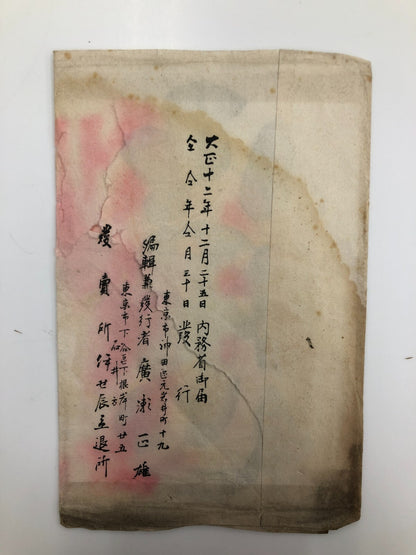 大正十二年十二月二十五日内務省御届
仝仝年仝月三十日發行
東京市神田区元岩井町十九
編輯兼發行者廣瀬正雄
東京市下谷区下根岸町廿五
石井方
發賣所伊世辰立退所